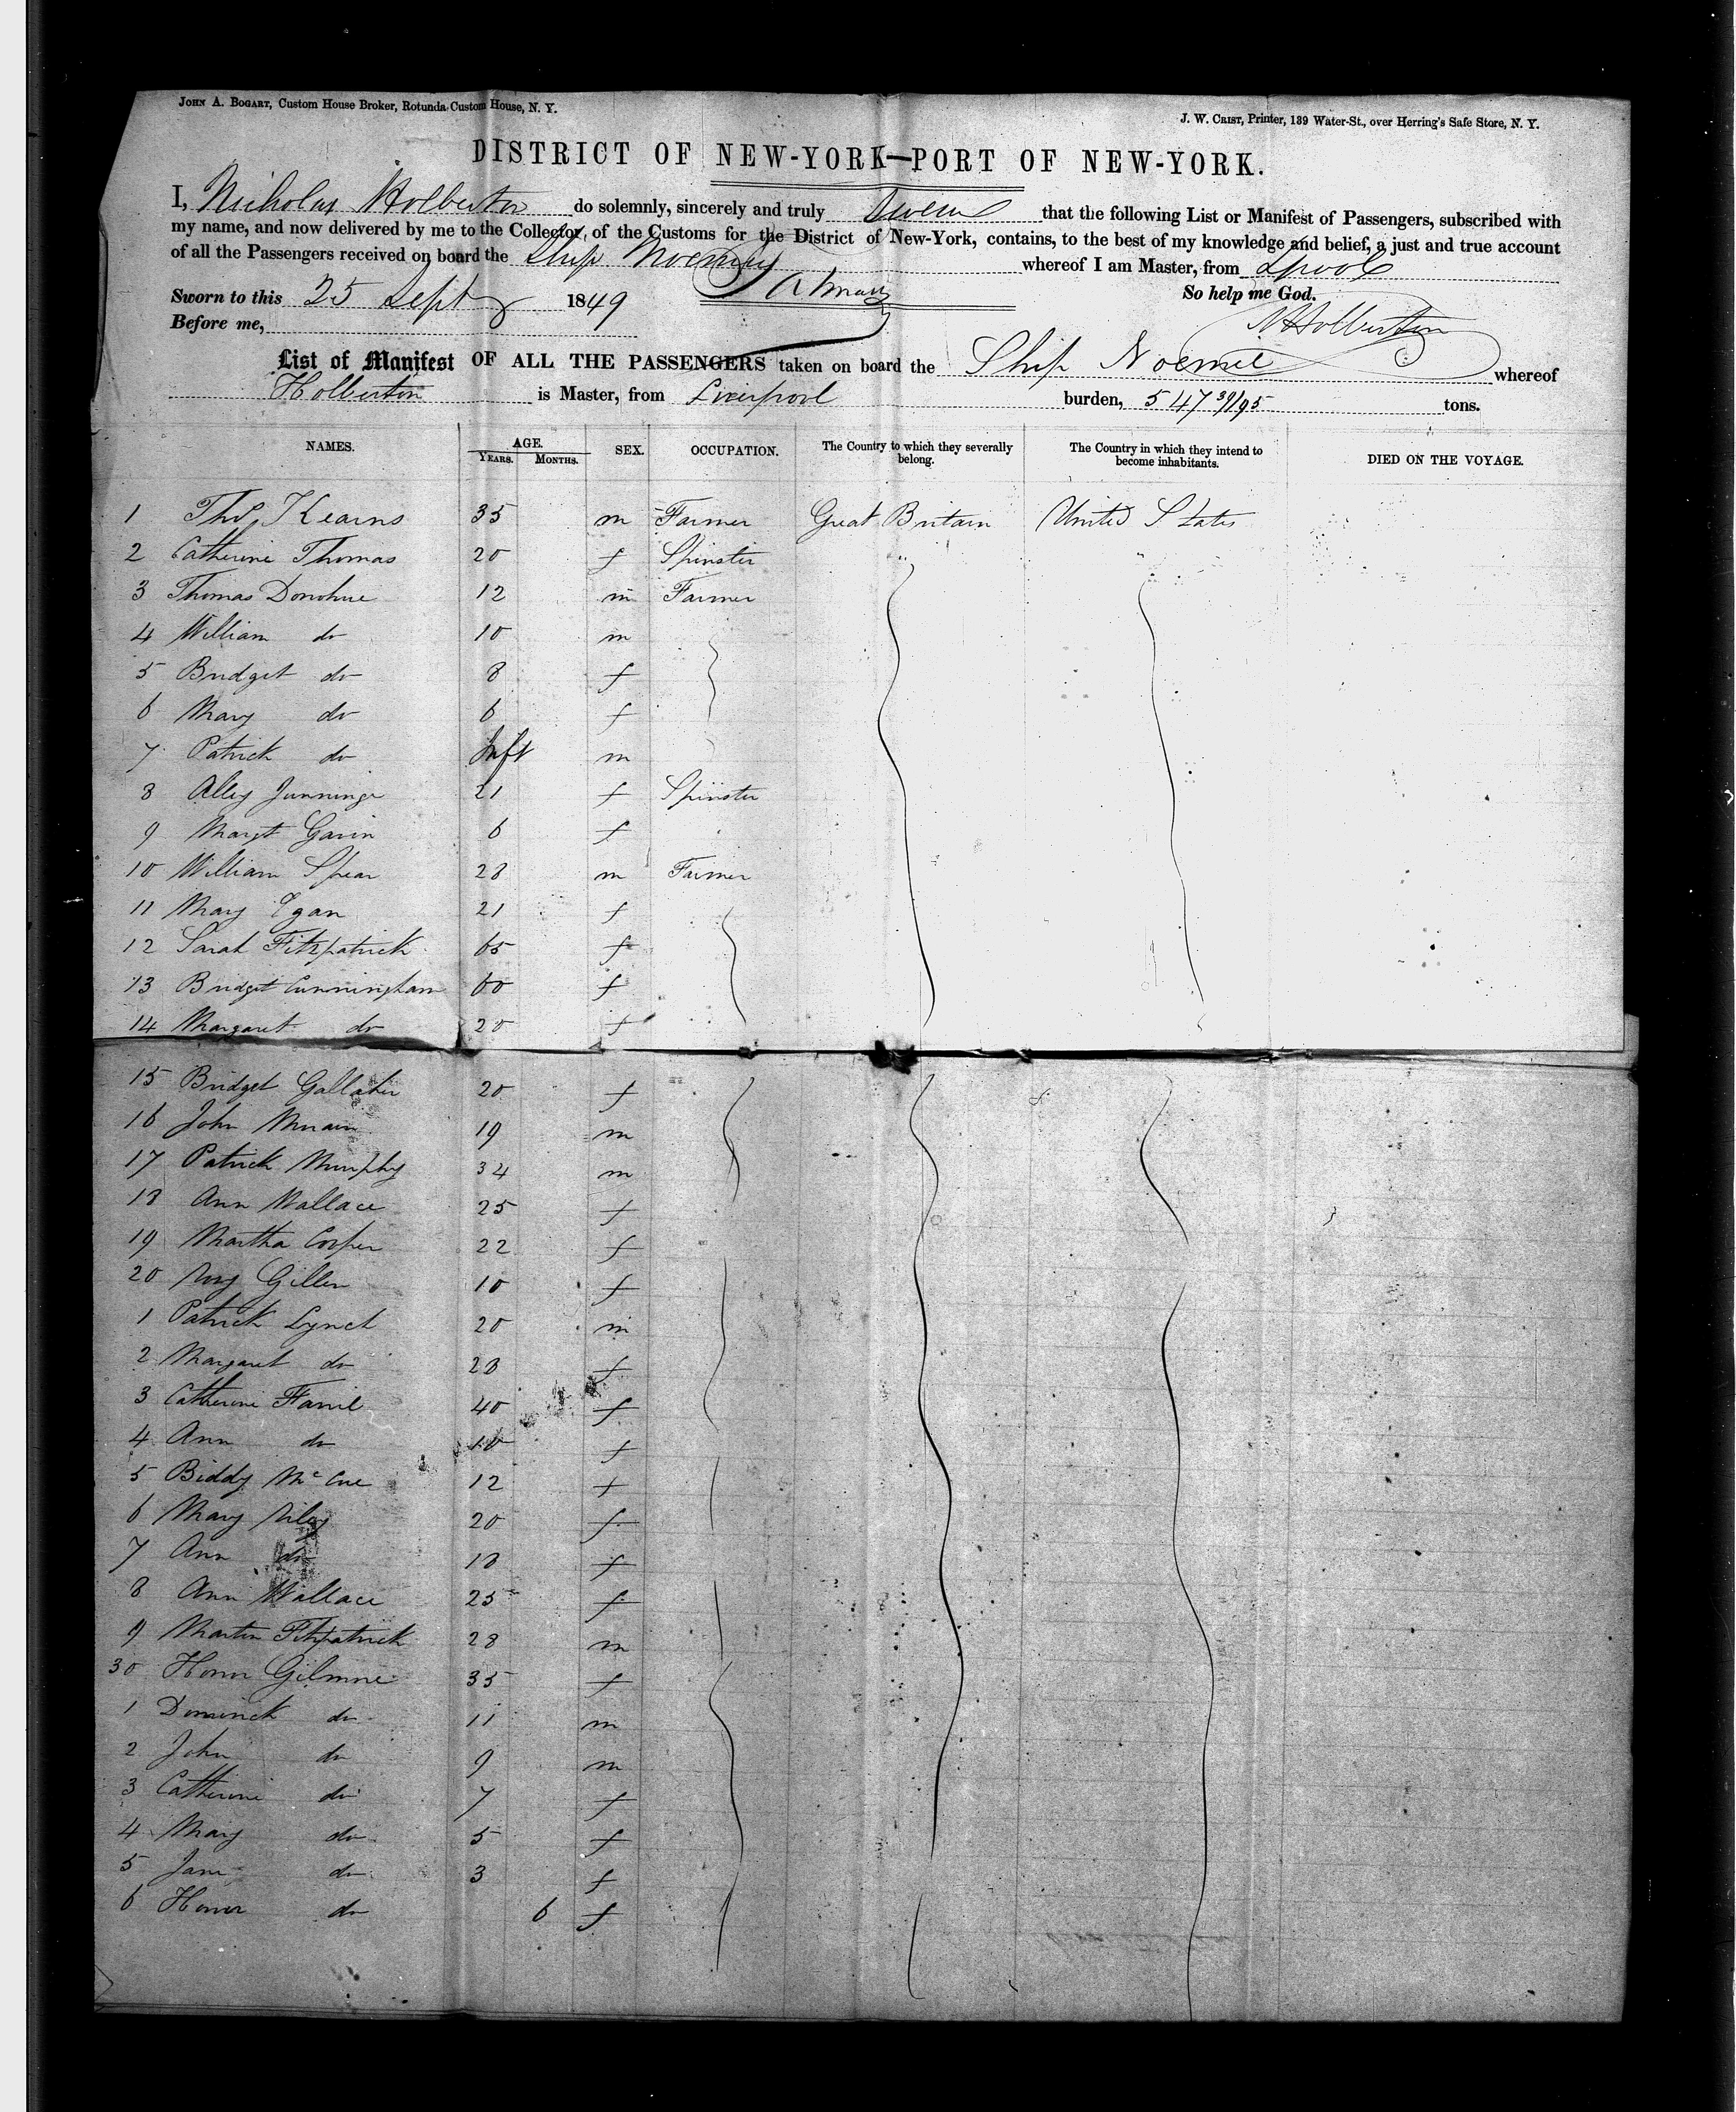 JOHN A. BOGART, Custom House Broker, Rotunda Custom House, N. Y.
J. W. CRIST, Printer, 139 Water-St., over Herring's Safe Store, N. Y.
DISTRICT OF NEW-YORK—PORT OF NEW-YORK.
I, Nicholas Holberton do solemnly, sincerely and truly Swear that the following List or Manifest of Passengers, subscribed with
my name, and now delivered by me to the Collector, of the Customs for the District of New-York, contains, to the best of my knowledge and belief, a just and true account
of all the Passengers received on board the Ship whereof I am Master, from Lpool
Sworn to this 25 Sept 1849 So help me God.
Before me, NHolberton
List of Manifest OF ALL THE PASSENGERS taken on board the Ship Noemie whereof
Holberton is Master, from Liverpool burden, 547 39/95 tons.
NAMES. AGE. YEARS. MONTHS. SEX. OCCUPATION. The Country to which they severally belong. The Country in which they intend to become inhabitants. DIED ON THE VOYAGE.
1 Thos Kearns 35 m Farmer Great Britain United States
2 Catherine Thomas 20 f Spinster " "
3 Thomas Donohue 12 m Farmer
4 William do 10 m
5 Bridget do 8 f
6 Mary do 6 f
7 Patrick do Inft m
8 Alley 21 f Spinster
9 Margt Gavin 6 f
10 William Spear 28 m Farmer
11 Mary Egan 21 f
12 Sarah Fitzpatrick 65 f
13 Bridget Cunningham 60 f
14 Margaret do 20 f
15 Bridget Gallaher 20 f
16 John 19 m
17 Patrick Murphy 34 m
18 Ann Wallace 25 f
19 Martha Cooper 22 f
20 Gillen 10 f
1 Patrick Lynch 20 m
2 Margaret do 28 f
3 Catherine 40 f
4 Ann do 10 f
5 Biddy McCue 12 f
6 Mary Riley 20 f
7 Ann do 18 f
8 Ann Wallace 25 f
9 Martin Fitzpatrick 28 m
30 Honor Gilmore 35 f
1 Dominick do 11 m
2 John do 9 m
3 Catherine do 7 f
4 Mary do 5 f
5 Jane do 3 f
6 Honor do 6 f